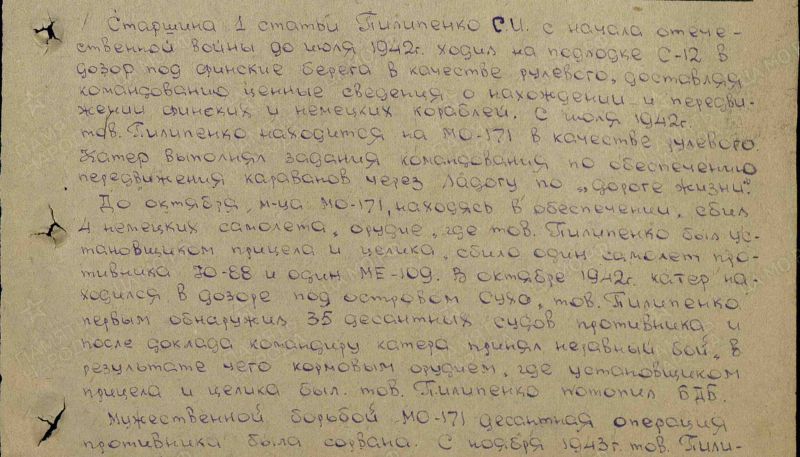 Старшина 1 статьи Пилипенко С.И. с начала отече-
ственной войны до июля 1942г. ходил на подлодке С-12 в
дозор под финские берега в качестве рулевого, доставляя
командованию ценные сведения о нахождении и передви-
жении финских и немецких кораблей. С июля 1942г.
тов. Пилипенко находится на МО-171 в качестве рулевого.
Катер выполнял задания командования по обеспечению
передвижения караванов через Ладогу по „дороге жизни".
До октября, м-ца МО-171, находясь в обеспечении, сбил
4 немецких самолета, орудие, где тов. Пилипенко был ус-
тановщиком прицела и целика, сбило один самолет про-
тивника Ю-88 и один МЕ-109. В октябре 1942г. катер на-
ходился в дозоре под островом Сухо, тов. Пилипенко
первым обнаружил 35 десантных судов противника и
после доклада командиру катера принял неравный бой, в
результате чего кормовым орудием, где установщиком
прицела и целика был тов. Пилипенко потопил БДБ.
Мужественной борьбой МО-171 десантная операция
противника была сорвана. С ноября 1943г. тов. Пили-